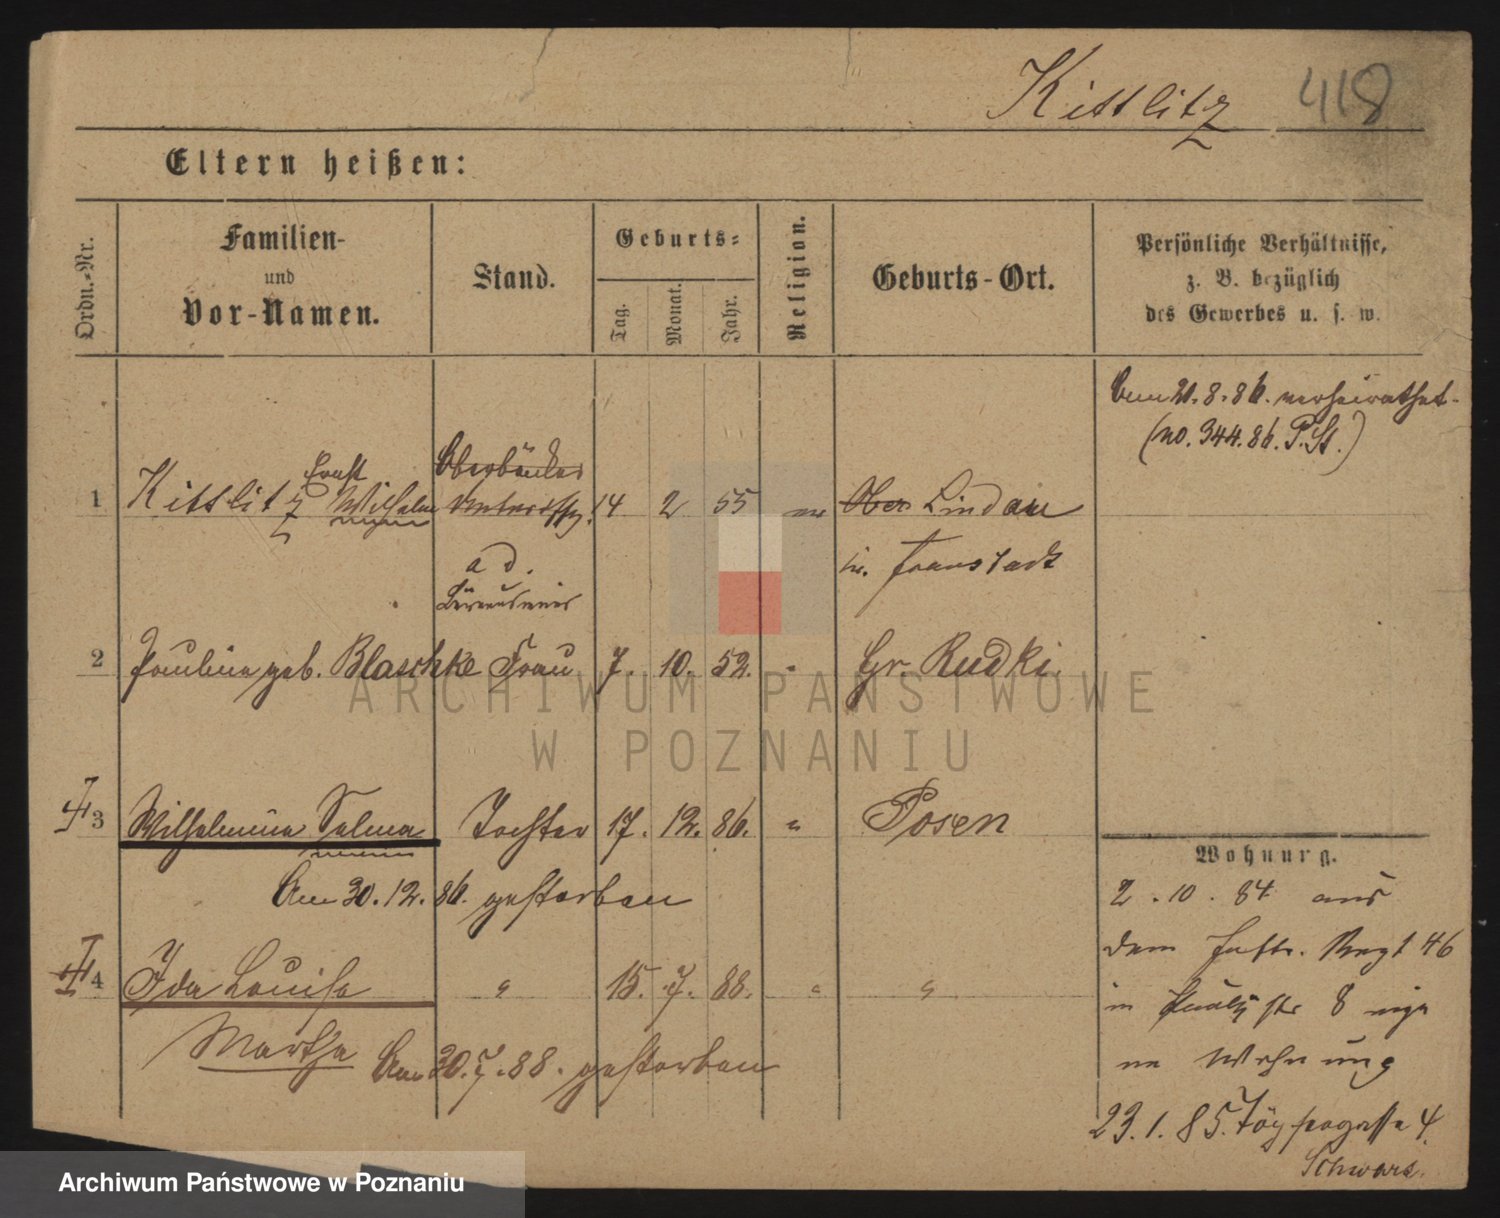 Kittlitz 418
Eltern heißen:
Ordn.-Nr.
Familien-
und
Vor-Namen.
Stand.
Geburts-
Tag.
Monat.
Jahr.
Religion.
Geburts-Ort.
Persönliche Verhältnisse,
z. B. bezüglich
des Gewerbes u. s. w.
Am 21.8.86. verheirathet.
(No. 344.86. P. St.)
Ernst
1 Kittlitz Wilhelm Unteroffz. 14 2 55 ev Ober Lindau
a d. Fraustadt
2 Pauline geb. Blaschke Frau 7. 10. 52. " Gr. Rudki
ARCHIWUM PAŃSTWOWE
W POZNANIU
3 Wilhelmine Selma Tochter 17. 12. 86. " Posen
Am 30.12.86. gestorben
4 Ida Louise " 15. 7. 88. " "
Martha Am 30.7.88. gestorben
Wohnung.
2.10.84 aus
dem Inftr. Regt 46
in 8 eige
ne Wohnung
23.1.85. 4.
Schwarz.
Archiwum Państwowe w Poznaniu